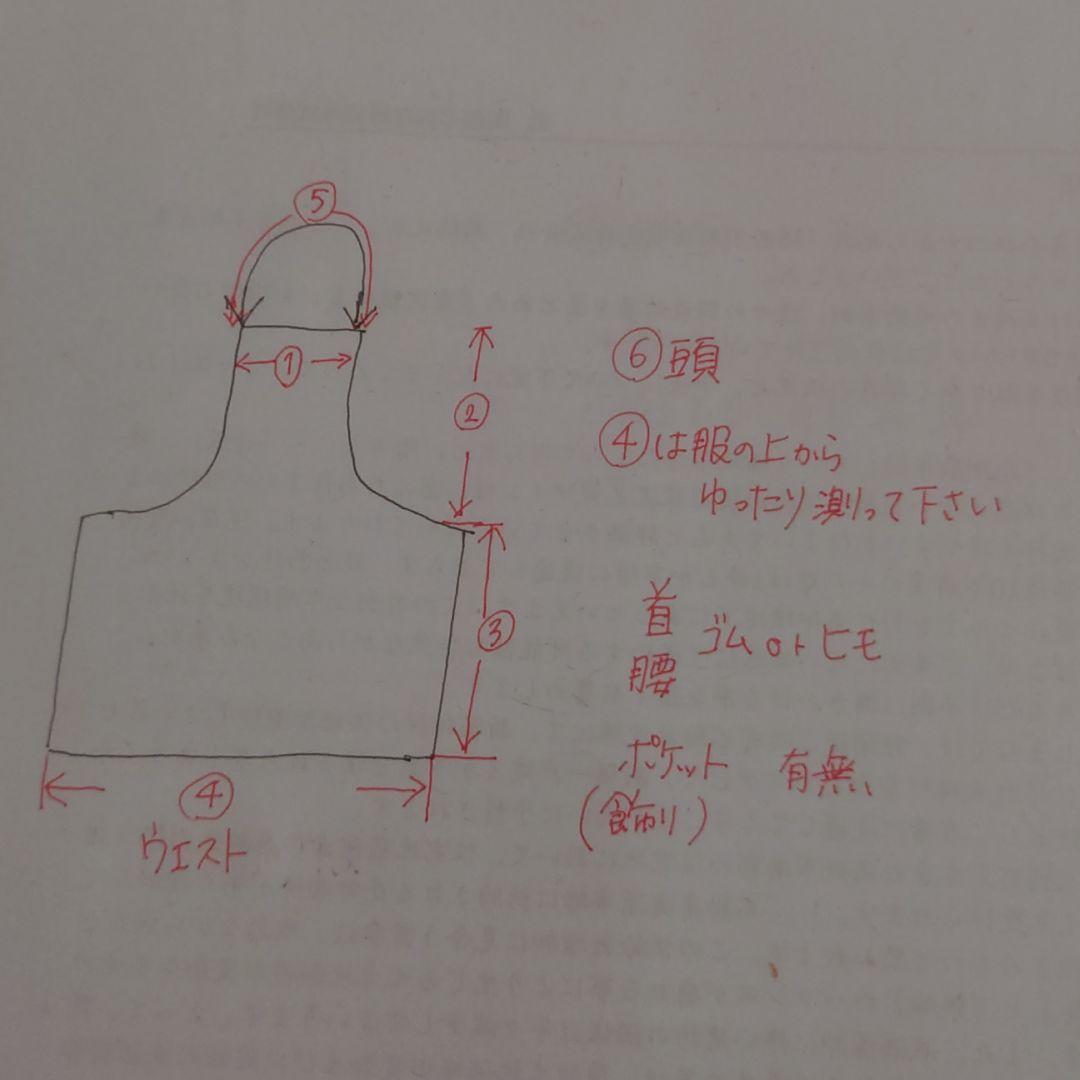 ⑤
①
②
③
④
ウエスト
⑥頭
④は服の上から
ゆったり測って下さい
首
腰
ゴム or ヒモ
ポケット 有無
(飾り)